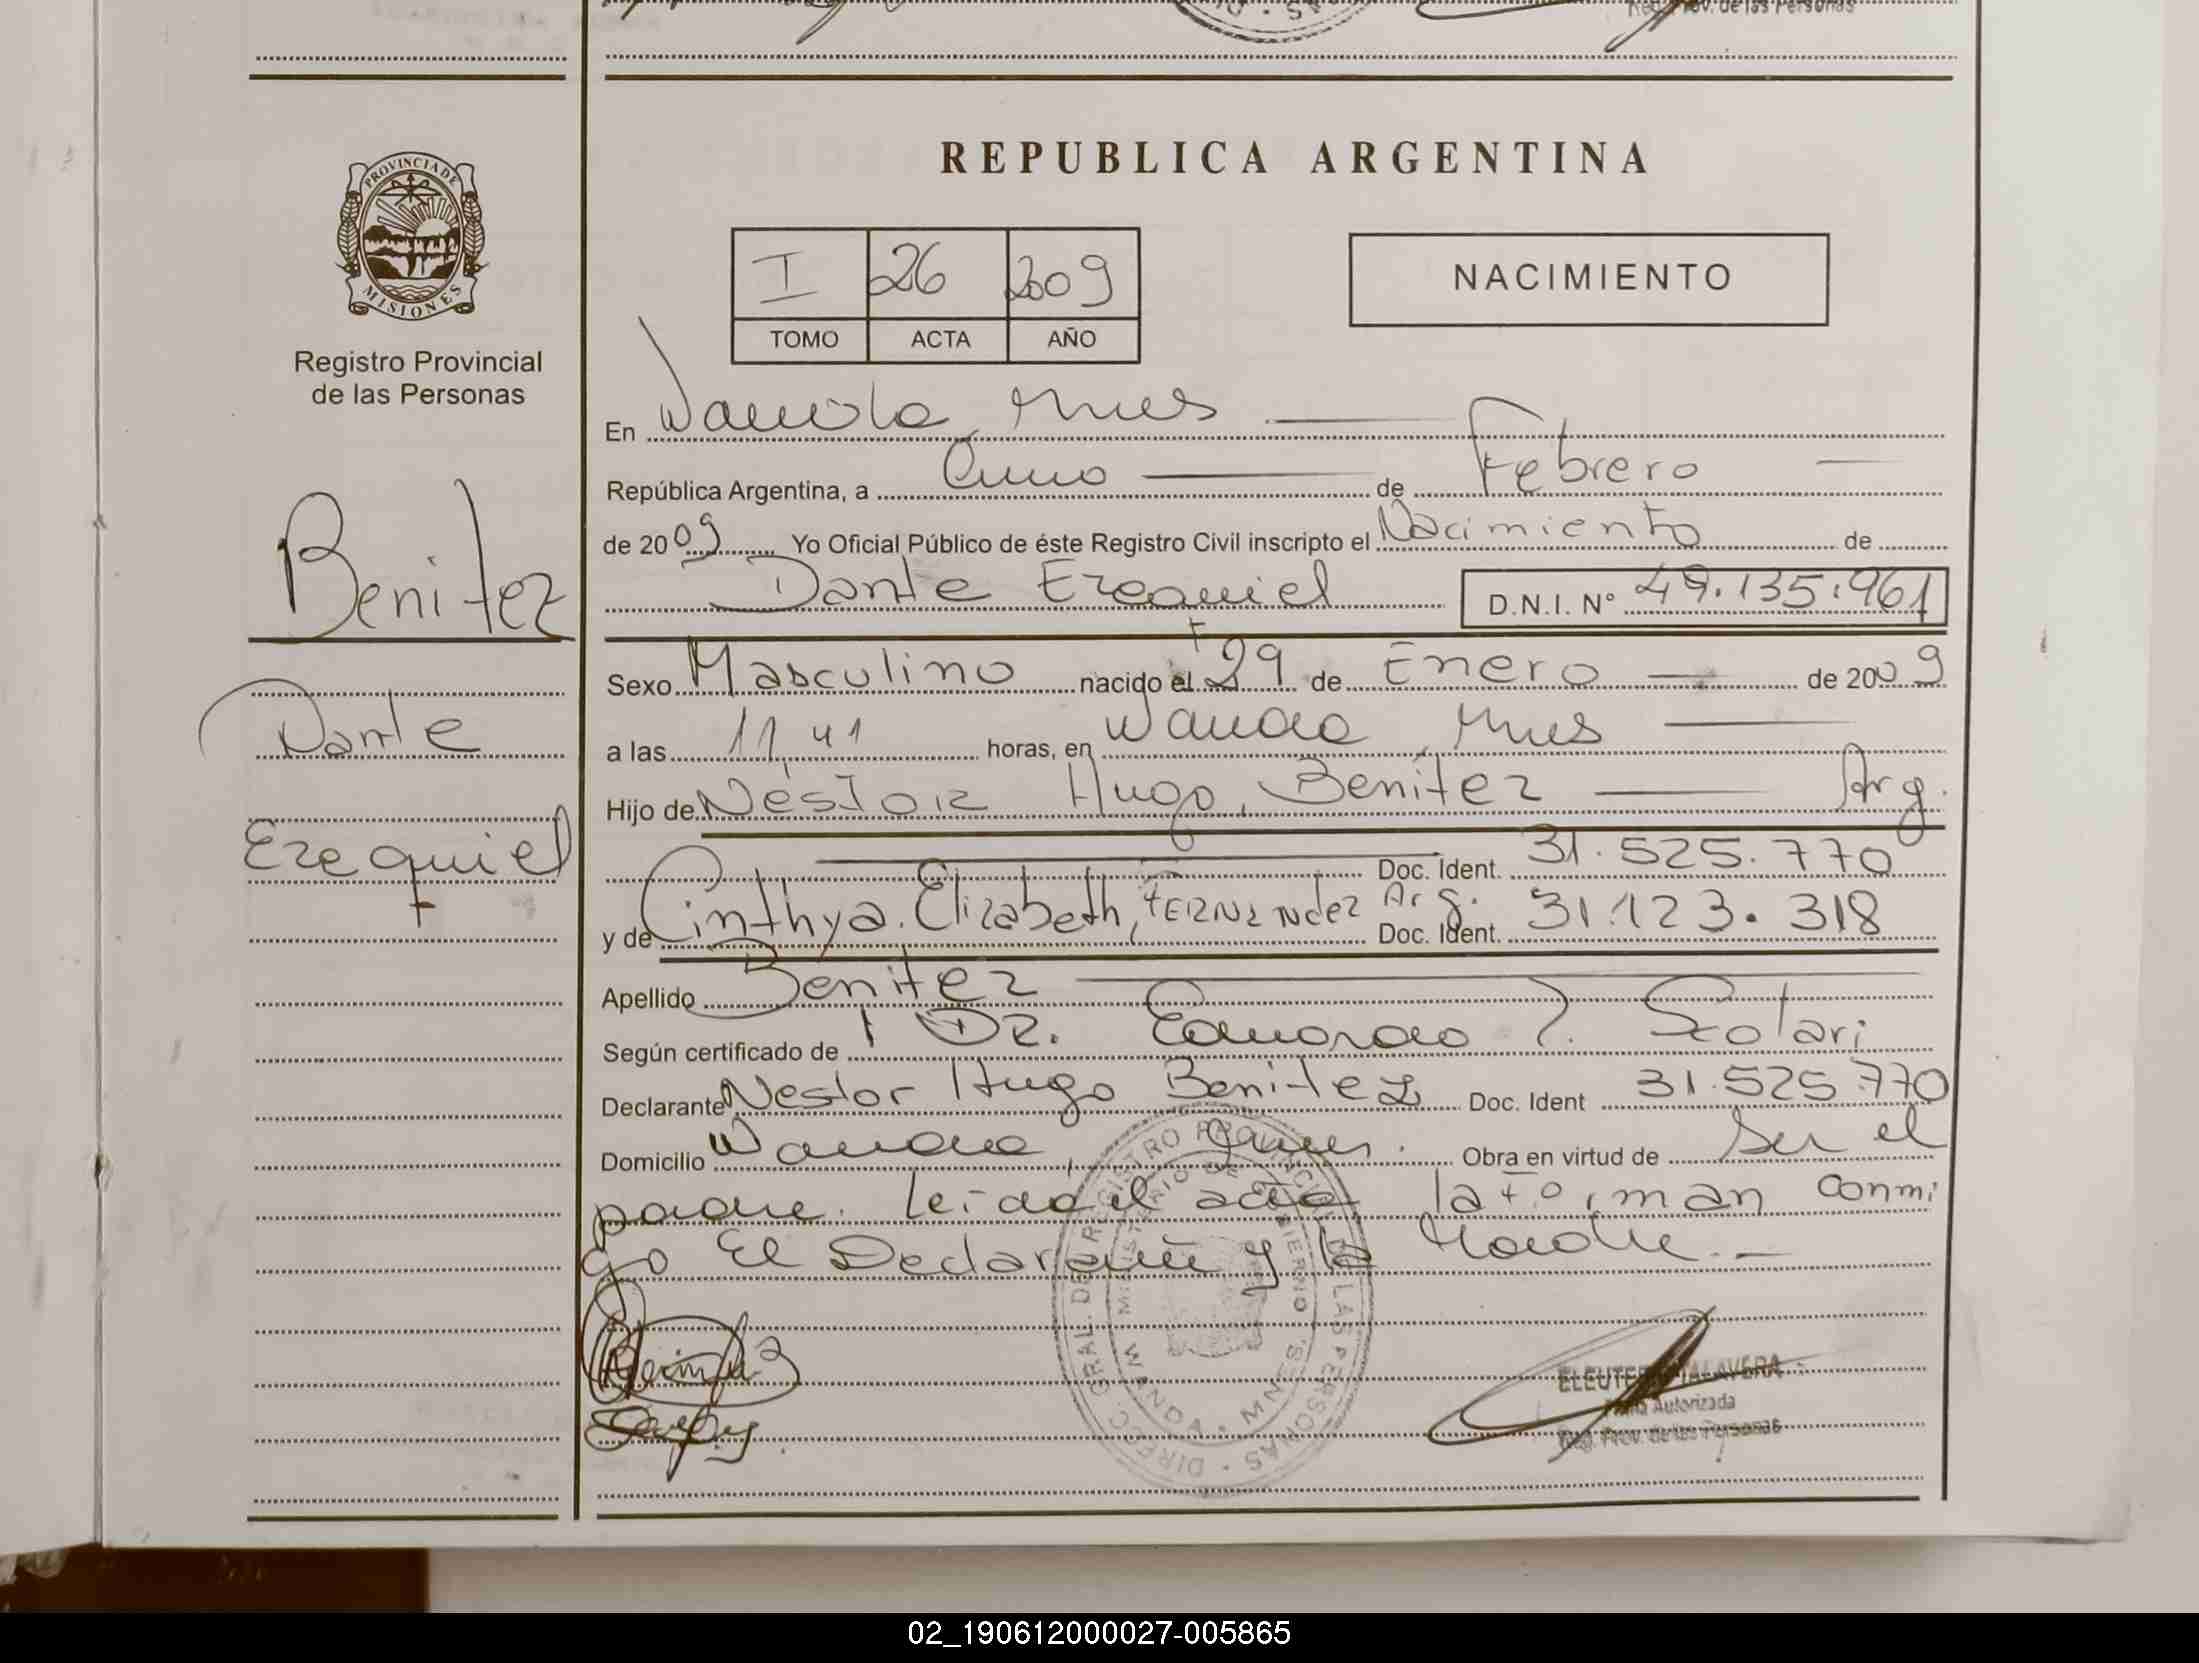 Reg. Prov. de las Personas
PROVINCIA DE
MISIONES
Registro Provincial
de las Personas
Benitez
Dante
Ezequiel
REPUBLICA ARGENTINA
I 26 2009
TOMO ACTA AÑO
NACIMIENTO
En Wanda, Mnes
República Argentina, a Cinco de Febrero
de 2009 Yo Oficial Público de éste Registro Civil inscripto el Nacimiento de
Dante Ezequiel D.N.I. Nº 49.135.961
Sexo Masculino nacido el 29 de Enero de 2009
a las 11,41 horas, en Wanda, Mnes
Hijo de Néstor Hugo, Benítez Arg.
Doc. Ident. 31.525.770
y de Cinthya Elizabeth, Fernandez Arg. Doc. Ident. 31.123.318
Apellido Benitez
Según certificado de Dr. Eduardo Scotari
Declarante Nestor Hugo Benitez Doc. Ident 31.525.770
Domicilio Wanda, Obra en virtud de Ser el
padre. Leida el acta, la firman conmi
go El Declarante y la Madre.
DIREC. GRAL. DEL REGISTRO PROVINCIAL DE LAS PERSONAS
MINISTERIO DE GOBIERNO
WANDA · MNES
ELEUTERIO TALAVERA
Firma Autorizada
Reg. Prov. de las Personas
02_190612000027-005865